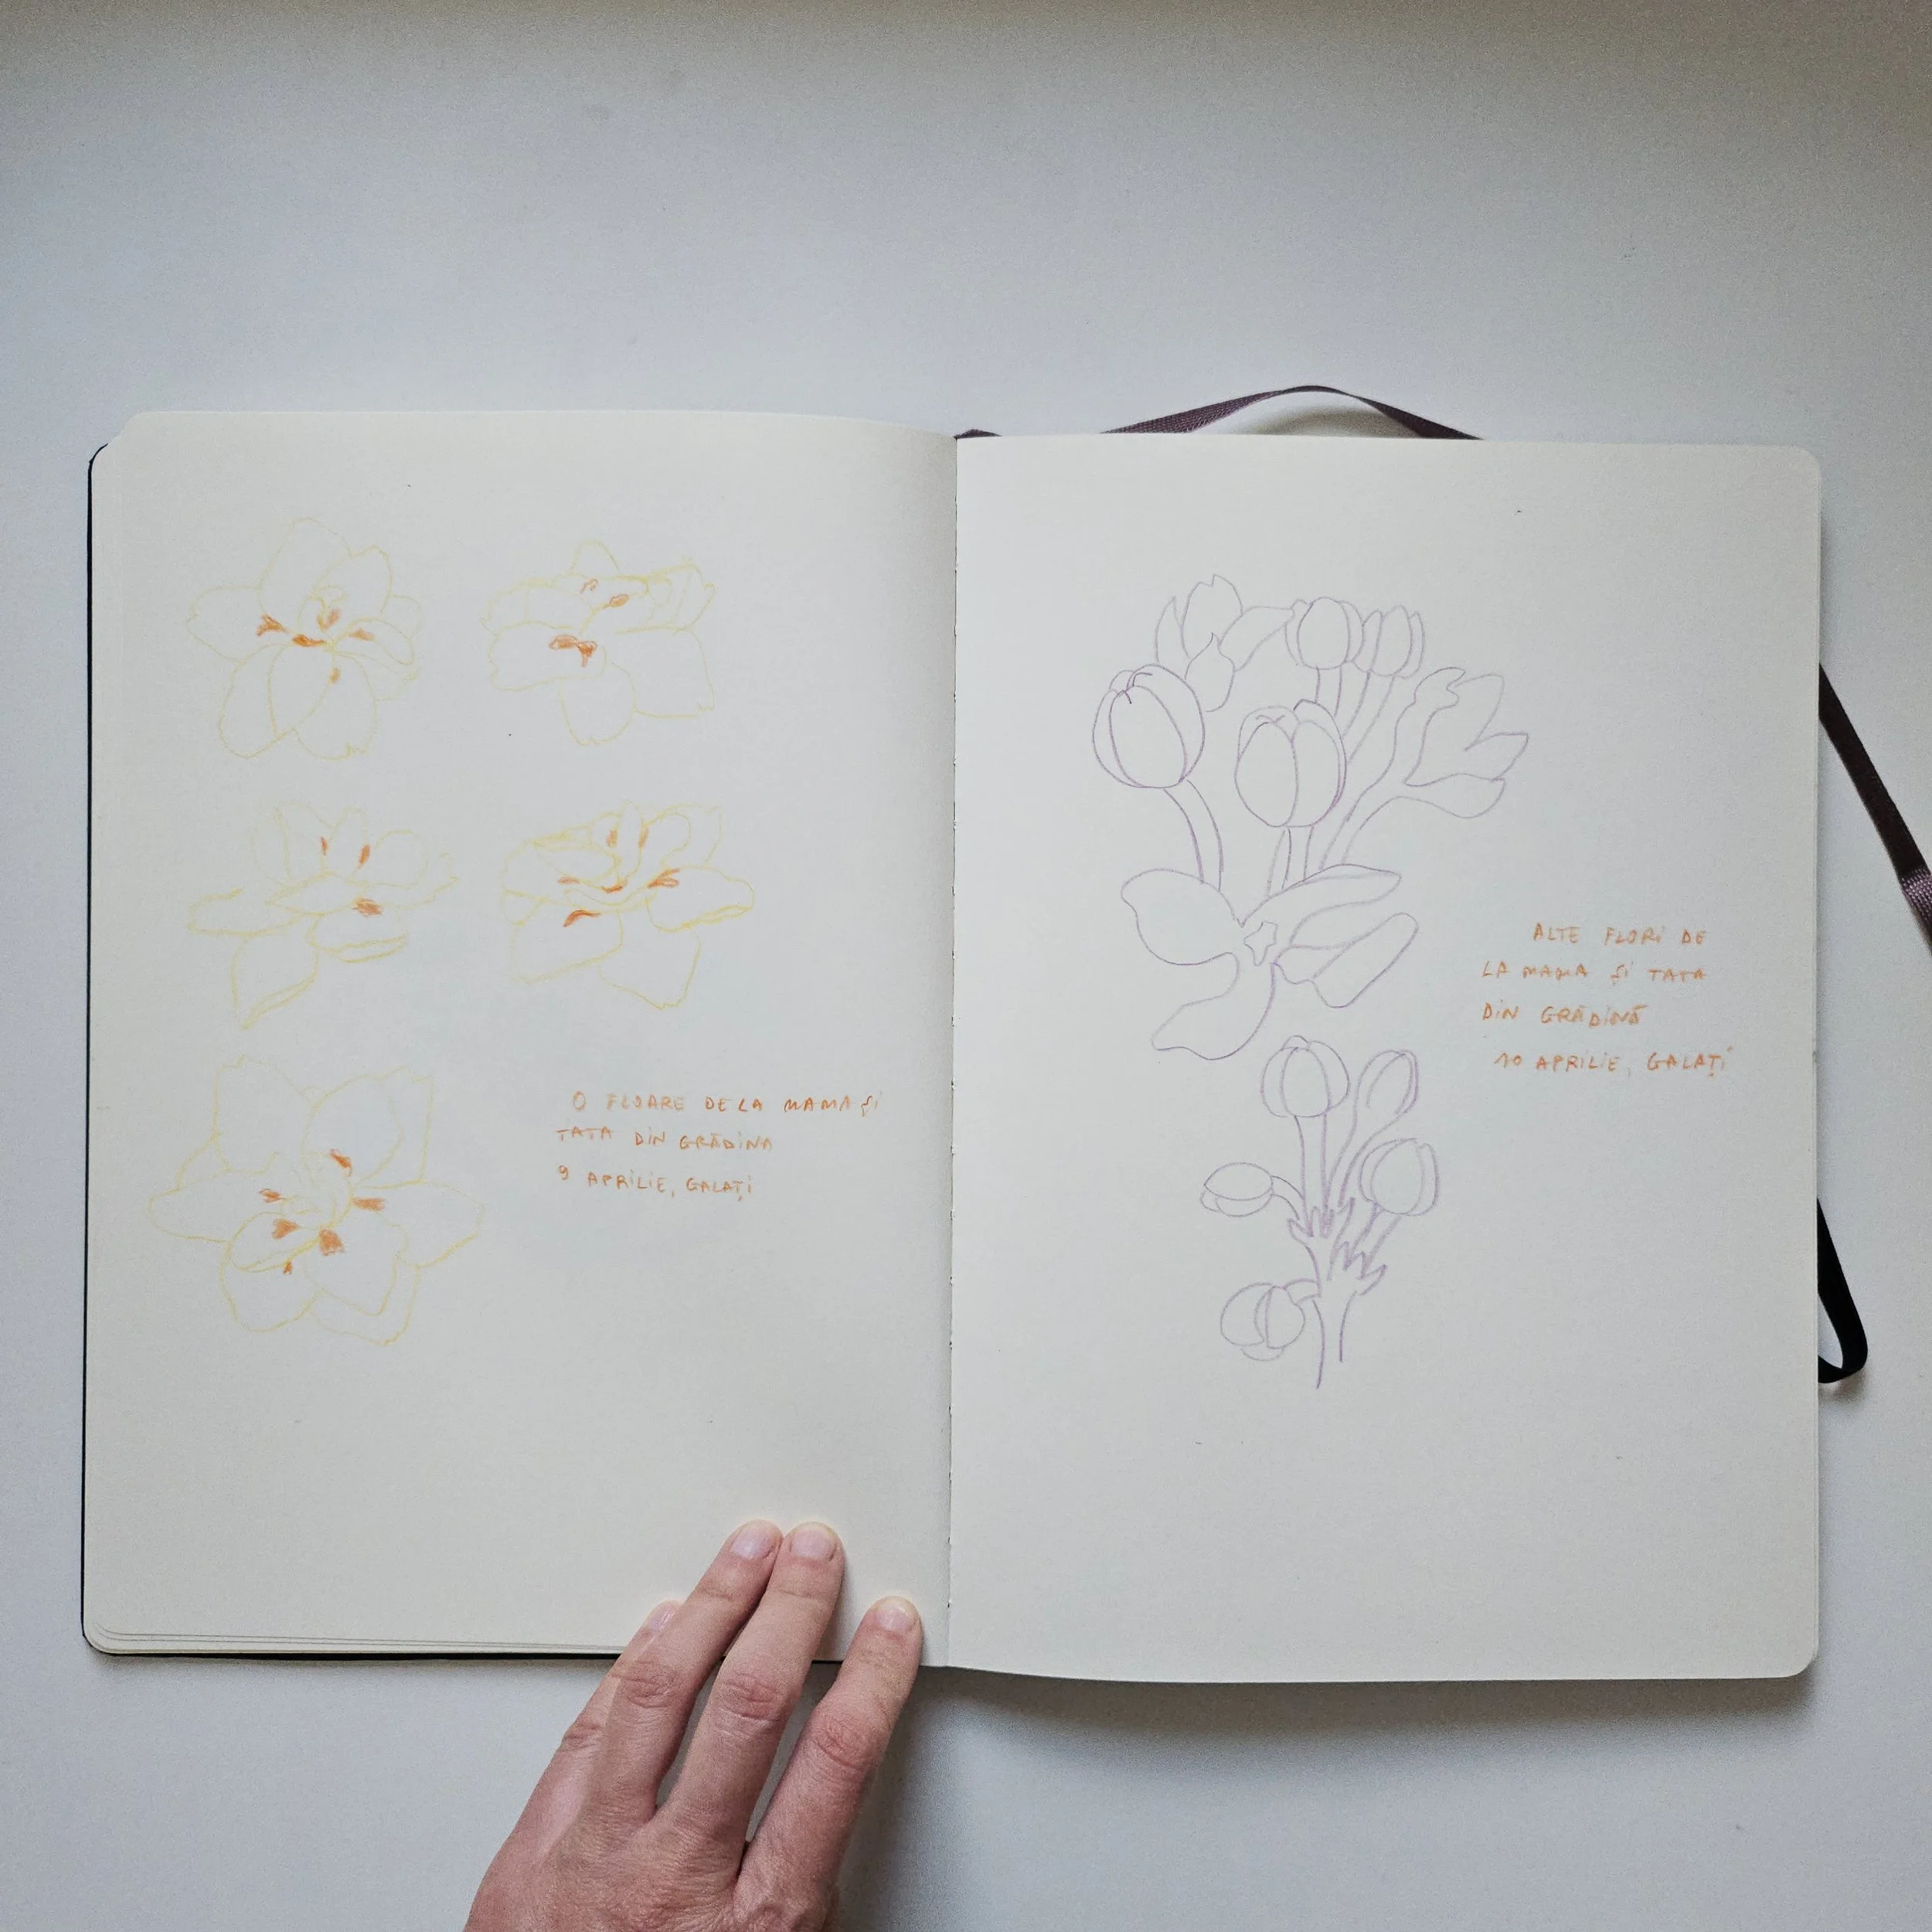 O FLOARE DE LA MAMA ȘI
TATA DIN GRĂDINA
9 APRILIE, GALAȚI
ALTE FLORI DE
LA MAMA ȘI TATA
DIN GRĂDINĂ
10 APRILIE, GALAȚI